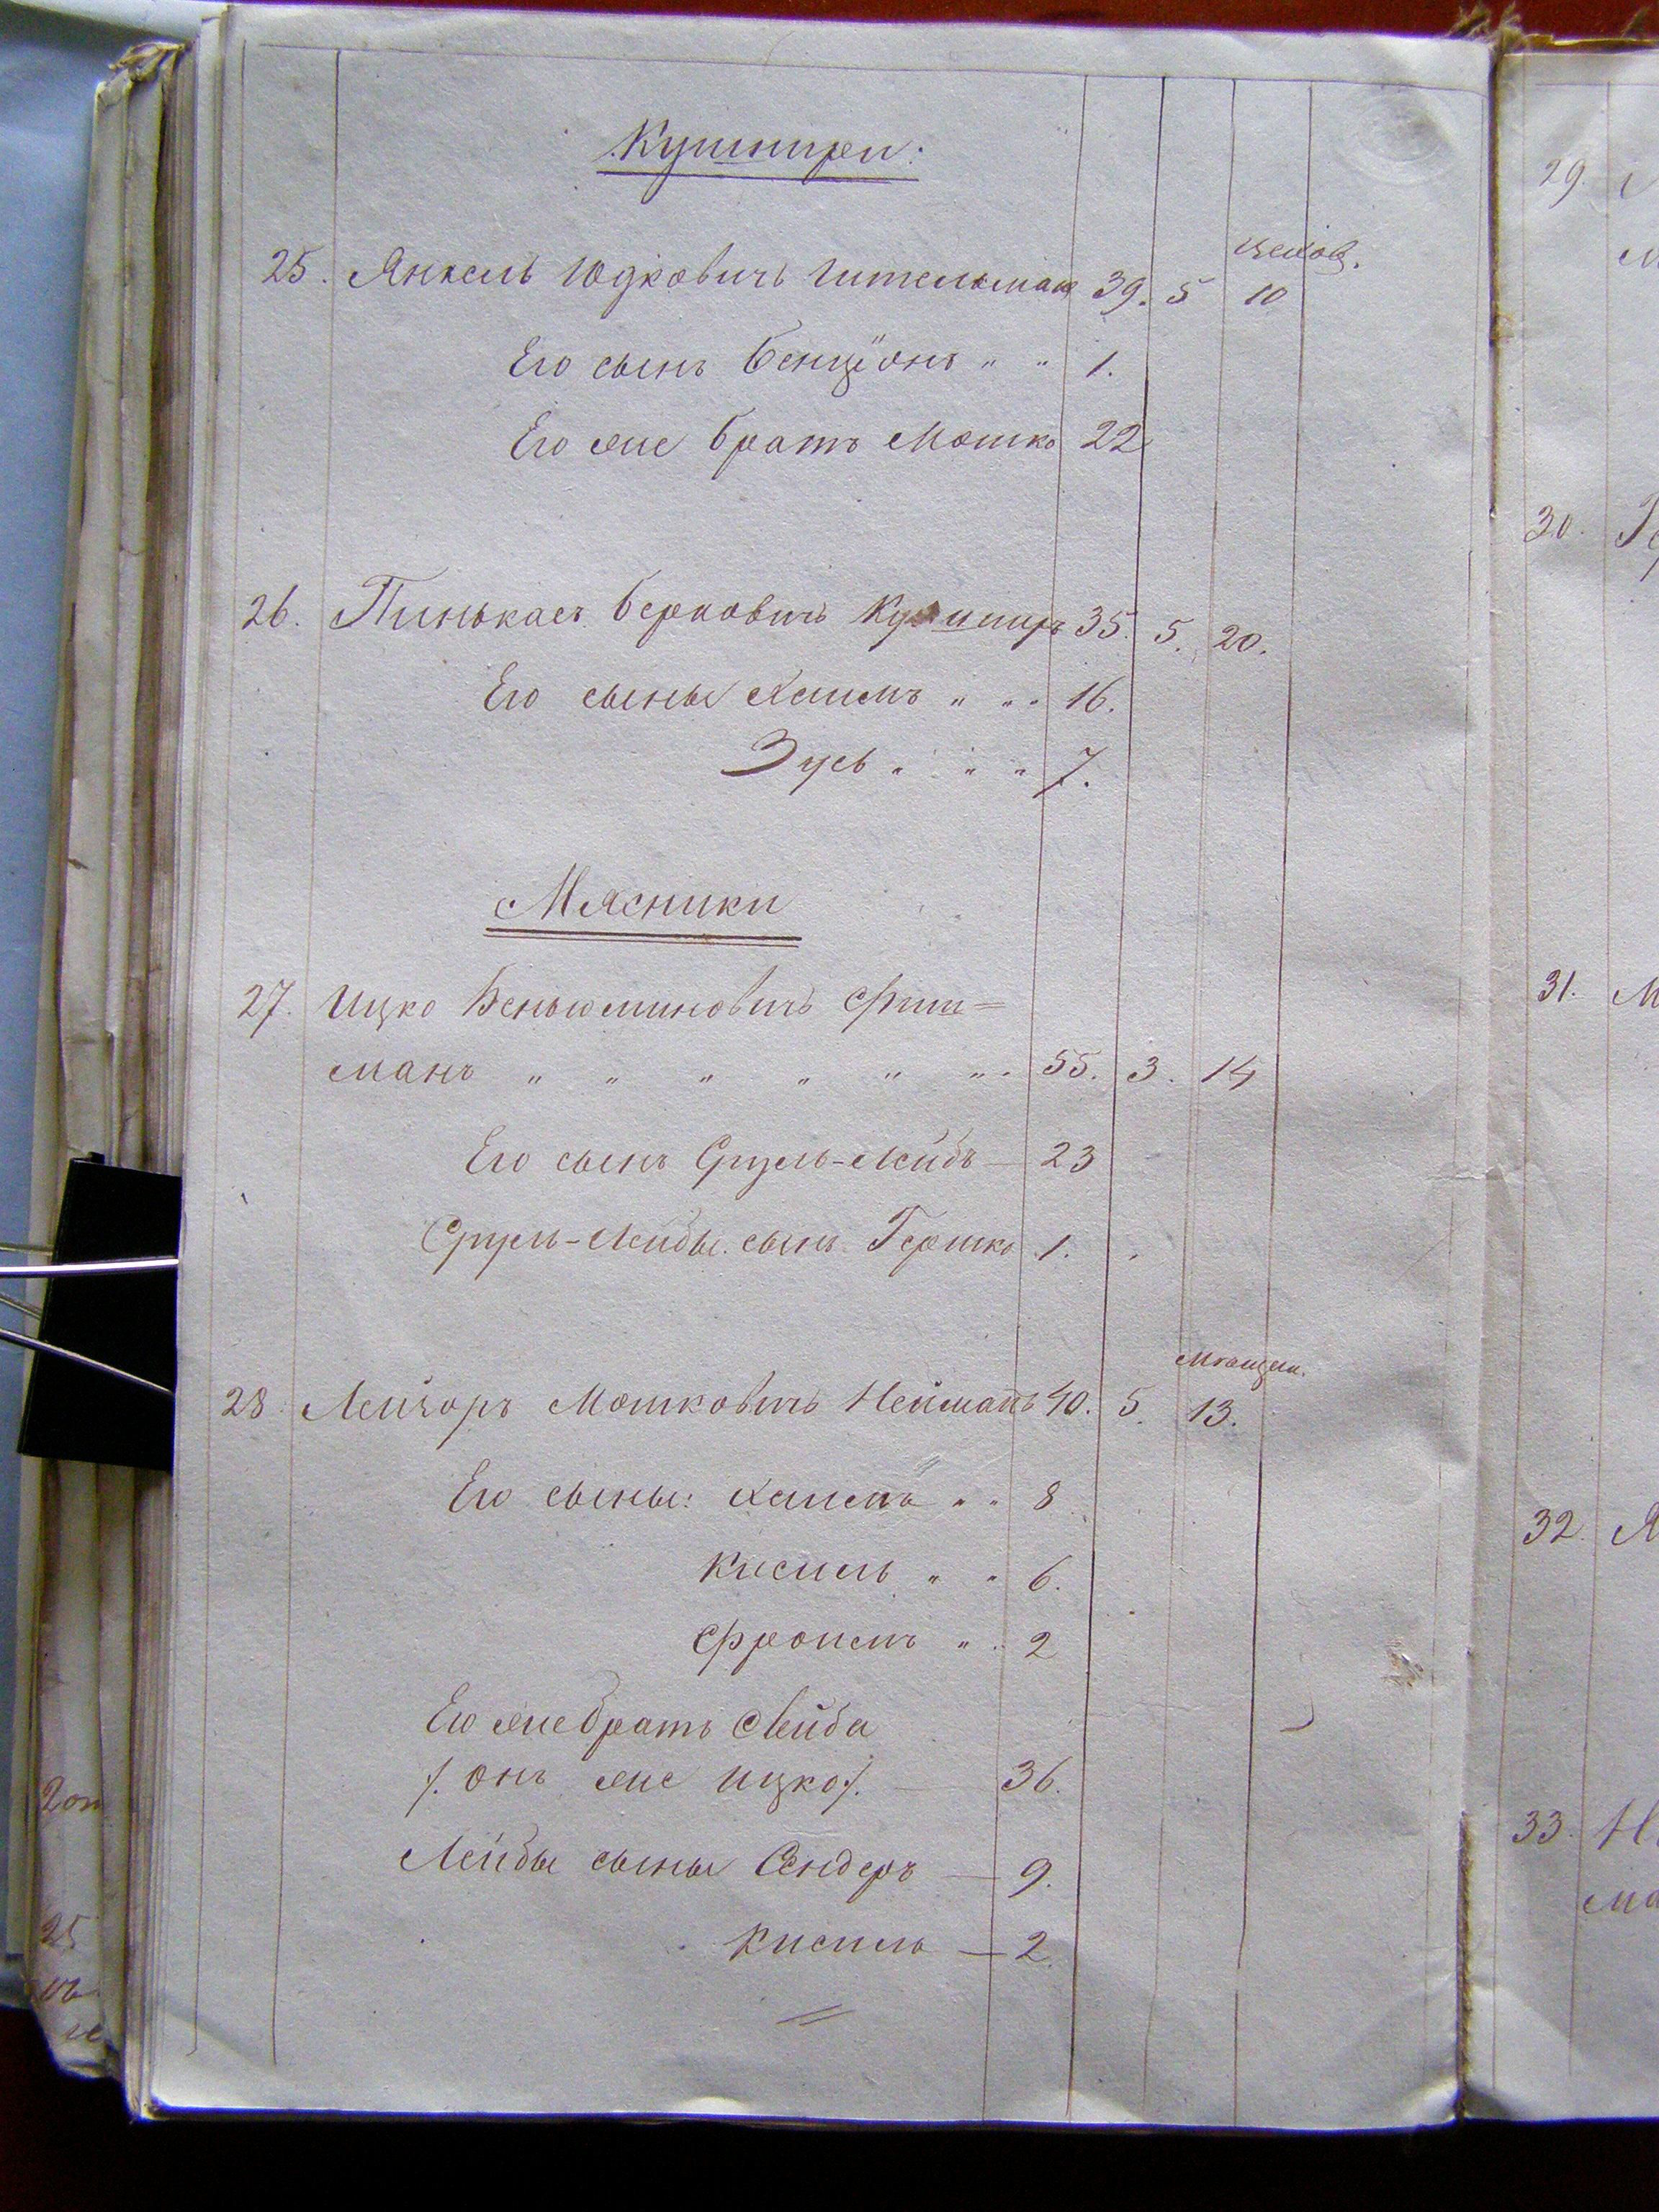 Кушнири.
цехов.
25. Янкель Юдковичъ Гительман 39. 5 10
Его сынъ Бенціонъ " " 1.
Его же братъ Мошко 22
26. Пинькасъ Берковичъ Кушниръ 35. 5. 20.
Его сыны Хаимъ " " " 16.
Зусь " " " 7.
Мясники
27. Ицко Веньюминовичъ Фиш=
манъ " " " " " " " 55. 3. 14
Его сынъ Сруль-Лейбъ — 23
Сруль-Лейбы сынъ Гершко 1.
мѣщан.
28. Лейзоръ Мошковичъ Нейманъ 40. 5. 13.
Его сыны: Хаимъ " " 8
Кисиль " " 6.
Фроимъ " " 2
Его же братъ Лейба
/. онъ же Ицко/. — 36.
Лейбы сыны Сендеръ — 9.
Кисиль — 2.
29.
30.
31. М
32. Я
33.
ма